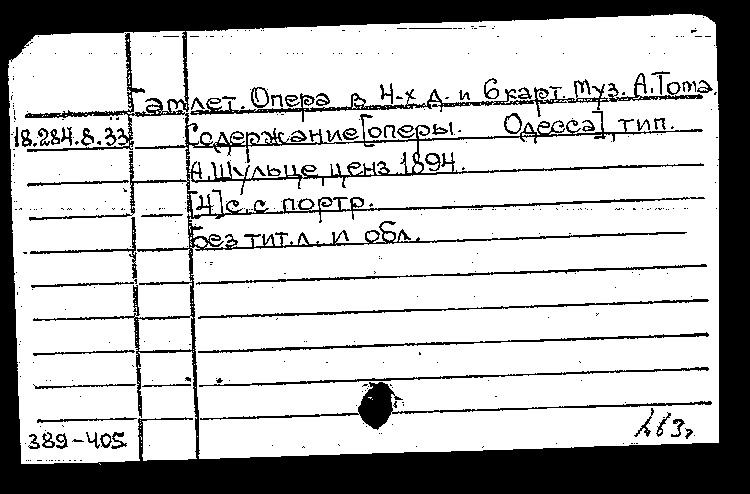 Гамлет. Опера в 4-х д. и 6 карт. Муз. А. Тома.
18.284.8.33 Содержание [оперы. Одесса], тип.
А. Шульце, ценз. 1894.
[4] с. с портр.
Без тит. л. и обл.
389-405